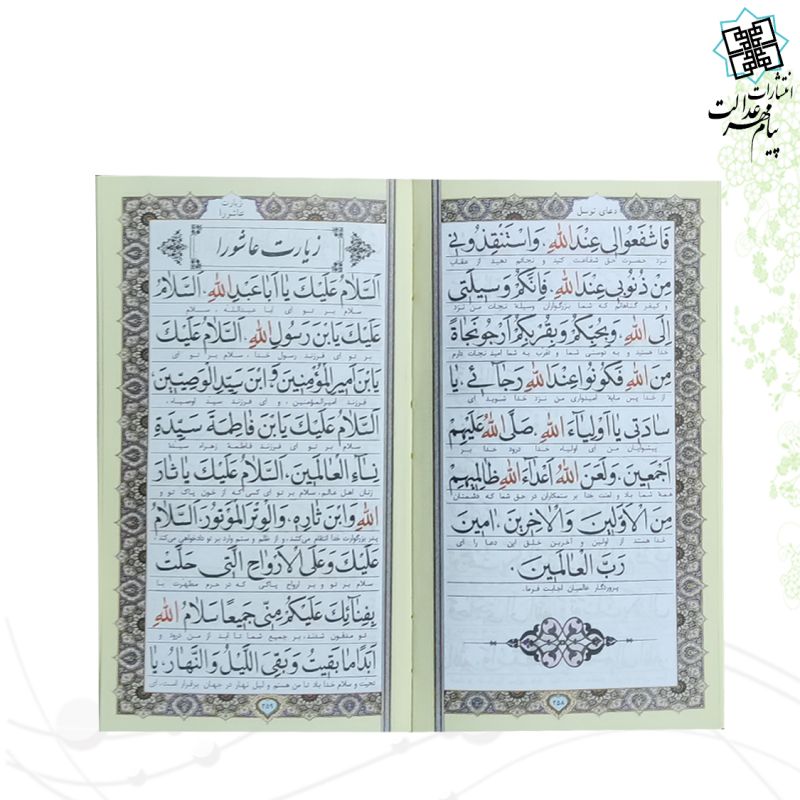 انتشارات
پیام مهر عدالت
دعای توسل
فَاشْفَعُوا لِی عِنْدَ اللهِ، وَاسْتَنْقِذُونِی
نزد حضرت حق شفاعت کنید و نجاتم دهید از عقاب
مِنْ ذُنُوبِی عِنْدَ اللهِ، فَاِنَّکُمْ وَسِیلَتِی
و کیفر گناهانم که شما بزرگواران وسیله نجات من نزد
اِلَی اللهِ، وَبِحُبِّکُمْ وَبِقُرْبِکُمْ اَرْجُو نَجَاةً
خدا هستید و به دوستی شما و تقرب به شما امید نجات دارم
مِنَ اللهِ فَکُونُوا عِنْدَ اللهِ رَجَائِی، یَا
از خدا پس مایه امیدواری من نزد خدا شوید ای
سَادَتِی یَا اَوْلِیَاءَ اللهِ، صَلَّی اللهُ عَلَیْهِمْ
پیشوایان من ای اولیاء خدا درود خدا بر
اَجْمَعِینَ، وَلَعَنَ اللهُ اَعْدَاءَ اللهِ ظَالِمِیهِمْ
همه شما باد و لعنت خدا بر ستمکاران در حق شما که دشمنان
مِنَ الْاَوَّلِینَ وَالْاٰخِرِینَ، اٰمِینَ
خدا هستند از اولین و آخرین خلق این دعا را ای
رَبَّ الْعَالَمِینَ.
پروردگار عالمیان اجابت فرما.
۲۵۸
زیارت
عاشورا
زیارت عاشورا
اَلسَّلَامُ عَلَیْکَ یَا اَبَا عَبْدِ اللهِ، اَلسَّلَامُ
سلام بر تو ای ابا عبدالله، سلام
عَلَیْکَ یَابْنَ رَسُولِ اللهِ، اَلسَّلَامُ عَلَیْکَ
بر تو ای فرزند رسول خدا، سلام بر تو ای
یَابْنَ اَمِیرِ الْمُؤْمِنِینَ وَابْنَ سَیِّدِ الْوَصِیِّینَ،
فرزند امیرالمؤمنین، و ای فرزند سید اوصیاء،
اَلسَّلَامُ عَلَیْکَ یَابْنَ فَاطِمَةَ سَیِّدَةِ
سلام بر تو ای فرزند فاطمه زهراء سیده
نِسَاءِ الْعَالَمِینَ، اَلسَّلَامُ عَلَیْکَ یَا ثَارَ
زنان اهل عالم، سلام بر تو ای کسی که از خون پاک تو و
اللهِ وَابْنَ ثَارِهِ، وَالْوِتْرَ الْمَوْتُورَ، اَلسَّلَامُ
پدر بزرگوارت خدا انتقام می‌کشد، و از ظلم و ستم وارد بر تو دادخواهی می‌کند،
عَلَیْکَ وَعَلَی الْاَرْوَاحِ الَّتِی حَلَّتْ
سلام بر تو و بر ارواح پاکی که در حرم مطهرت با
بِفِنَائِکَ عَلَیْکُمْ مِنِّی جَمِیعًا سَلَامُ اللهِ
تو مدفون شدند، بر جمیع شما تا ابد از من درود و
اَبَدًا مَا بَقِیتُ وَبَقِیَ اللَّیْلُ وَالنَّهَارُ، یَا
تحیت و سلام خدا باد تا من هستم و لیل نهار در جهان برقرار است، ای
۲۵۹